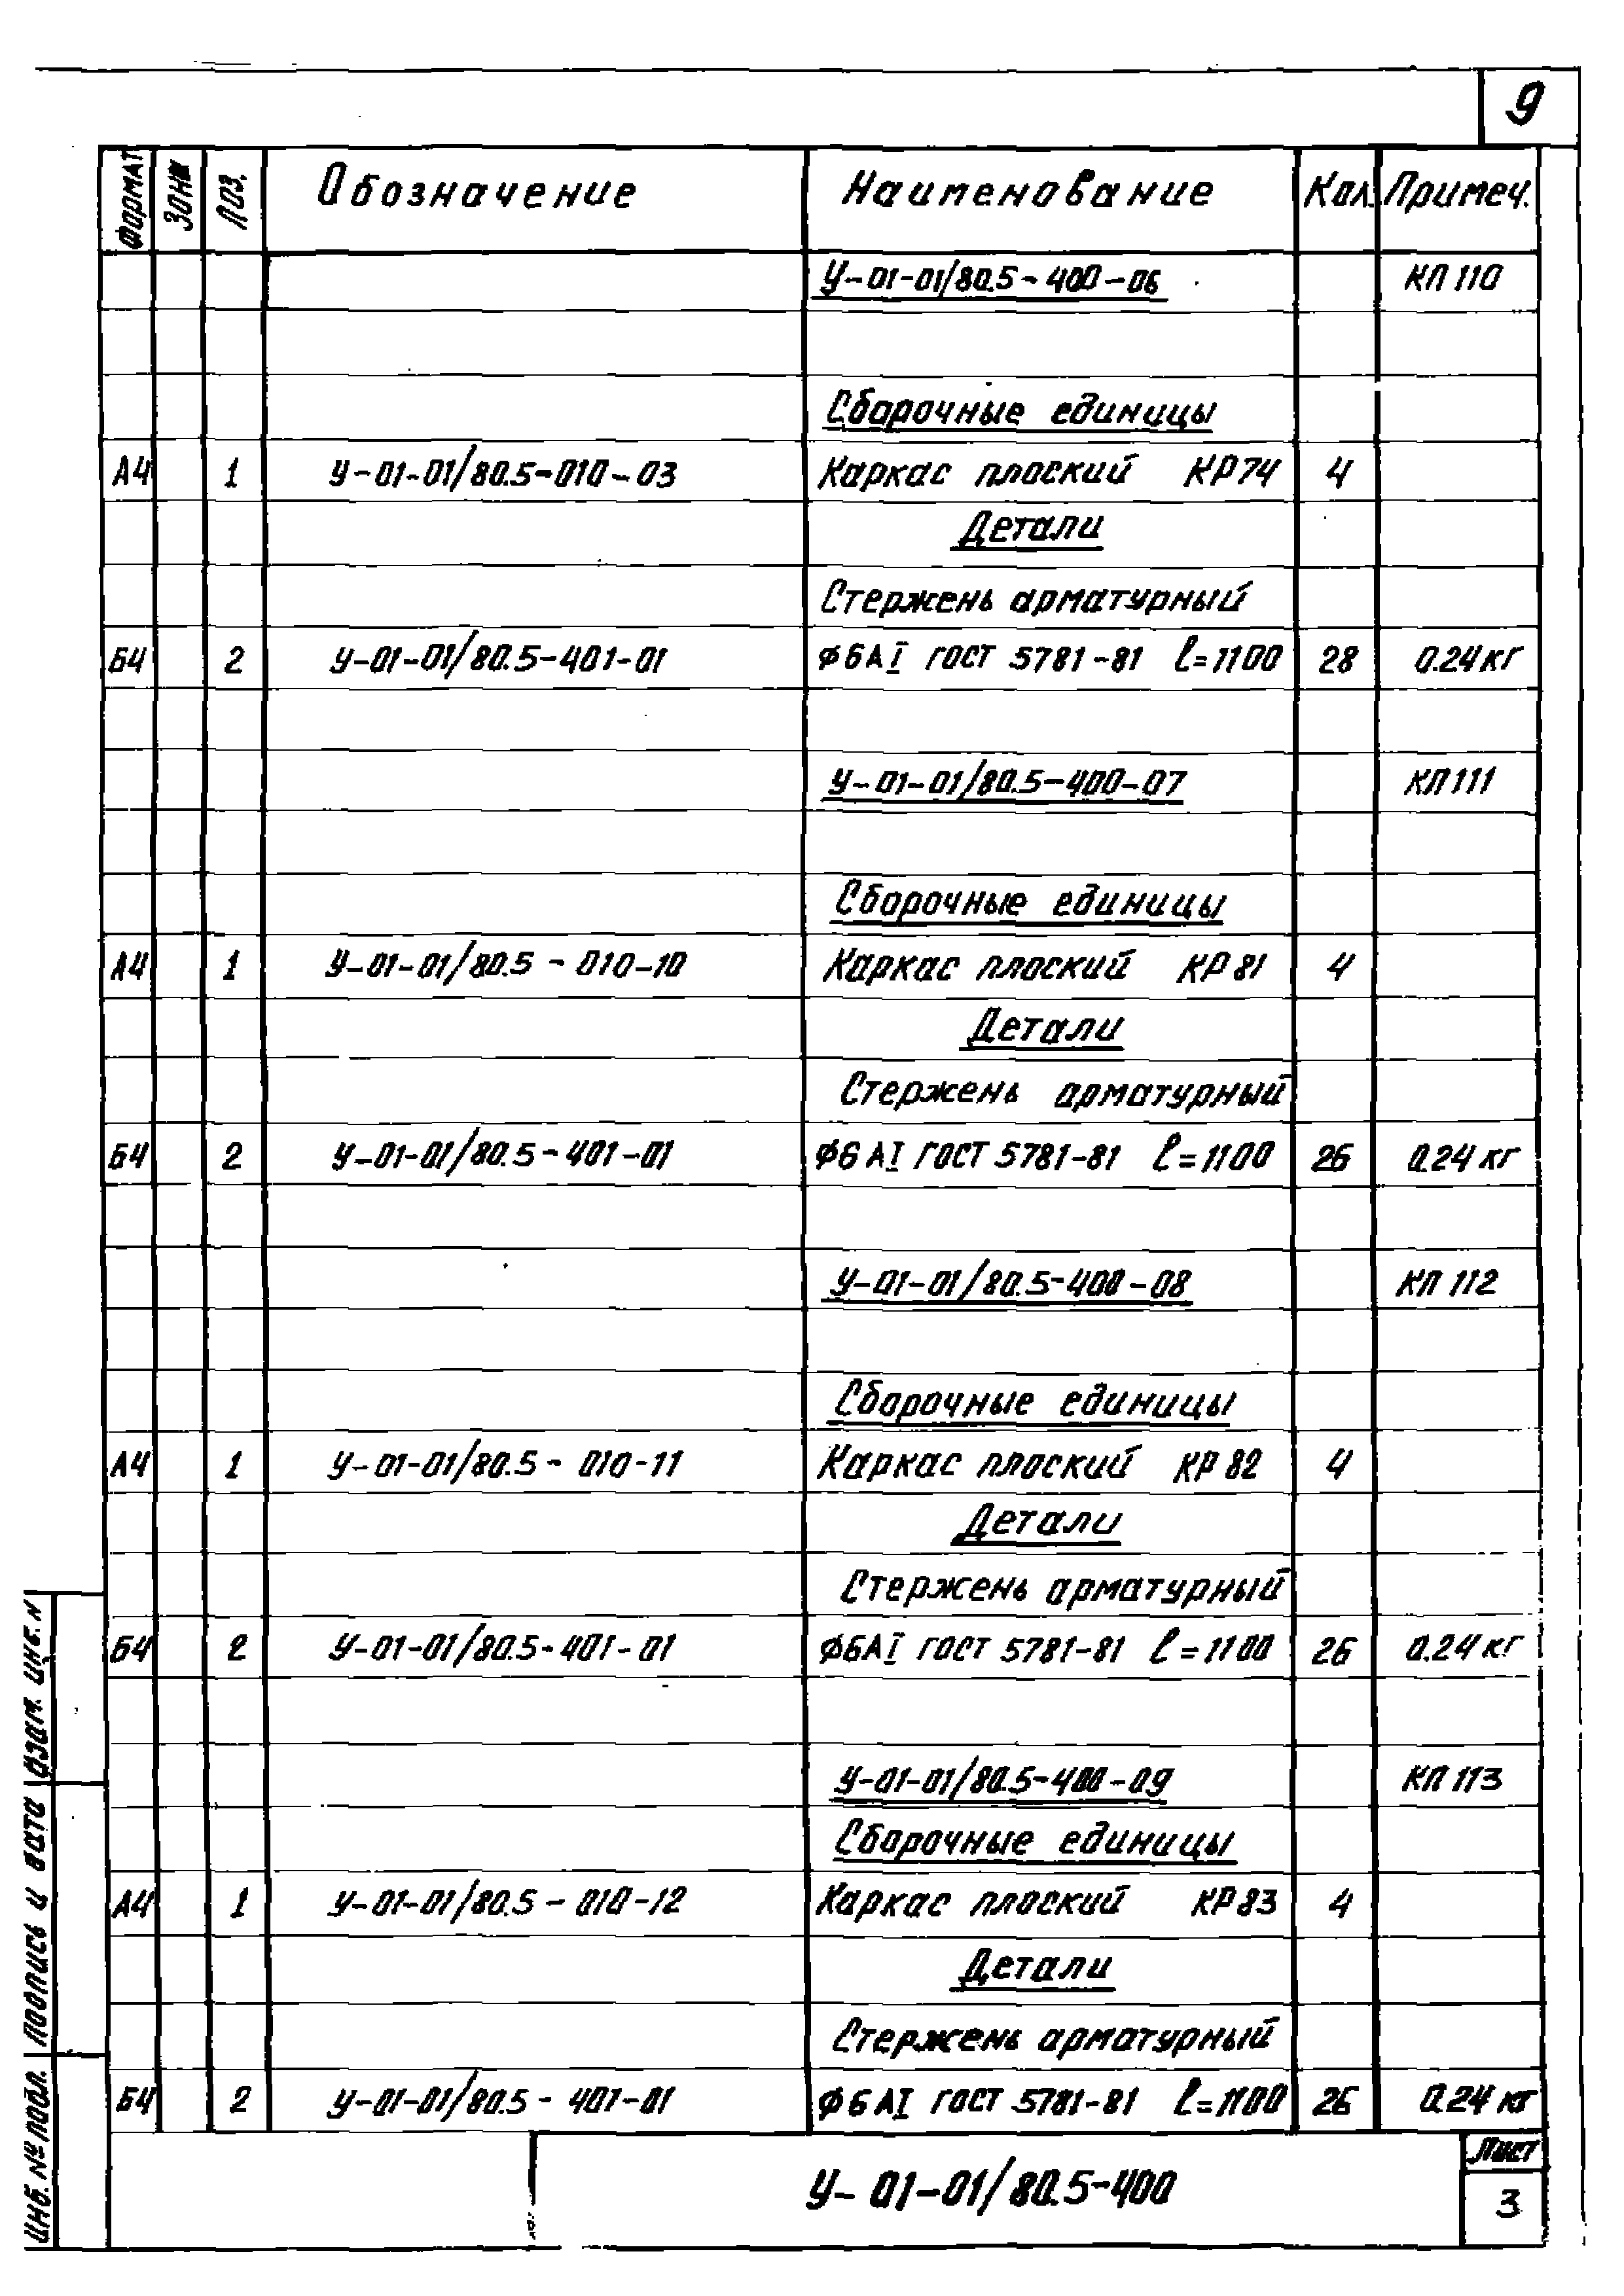 9
Формат Зона Поз. Обозначение Наименование Кол. Примеч.
У-01-01/80.5-400-06 КП 110
Сборочные единицы
А4 1 У-01-01/80.5-010-03 Каркас плоский КР74 4
Детали
Стержень арматурный
Б4 2 У-01-01/80.5-401-01 Ф6АI ГОСТ 5781-81 ℓ=1100 28 0.24кг
У-01-01/80.5-400-07 КП111
Сборочные единицы
А4 1 У-01-01/80.5-010-10 Каркас плоский КР81 4
Детали
Стержень арматурный
Б4 2 У-01-01/80.5-401-01 Ф6АI ГОСТ 5781-81 ℓ=1100 26 0.24кг
У-01-01/80.5-400-08 КП 112
Сборочные единицы
А4 1 У-01-01/80.5-010-11 Каркас плоский КР82 4
Детали
Стержень арматурный
Б4 2 У-01-01/80.5-401-01 Ф6АI ГОСТ 5781-81 ℓ=1100 26 0.24кг
У-01-01/80.5-400-09 КП 113
Сборочные единицы
А4 1 У-01-01/80.5-010-12 Каркас плоский КР83 4
Детали
Стержень арматурный
Б4 2 У-01-01/80.5-401-01 Ф6АI ГОСТ 5781-81 ℓ=1100 26 0.24кг
У-01-01/80.5-400
Лист
3
Инв. № подл. Подпись и дата Взам. инв. N